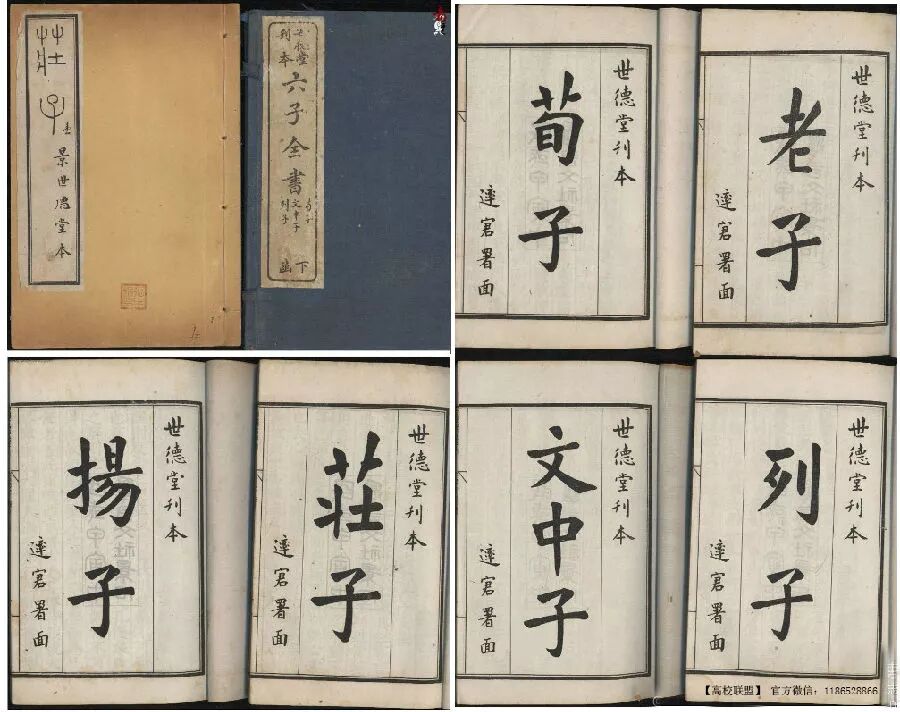 莊子
景世德堂本
世德堂
刊本
六子全書
荀子
文中子
列子
下函
世德堂刊本
荀子
達署面
世德堂刊本
老子
達署面
世德堂刊本
揚子
達署面
世德堂刊本
莊子
達署面
世德堂刊本
文中子
達署面
世德堂刊本
列子
達署面
【高校联盟】 官方微信：1186528866